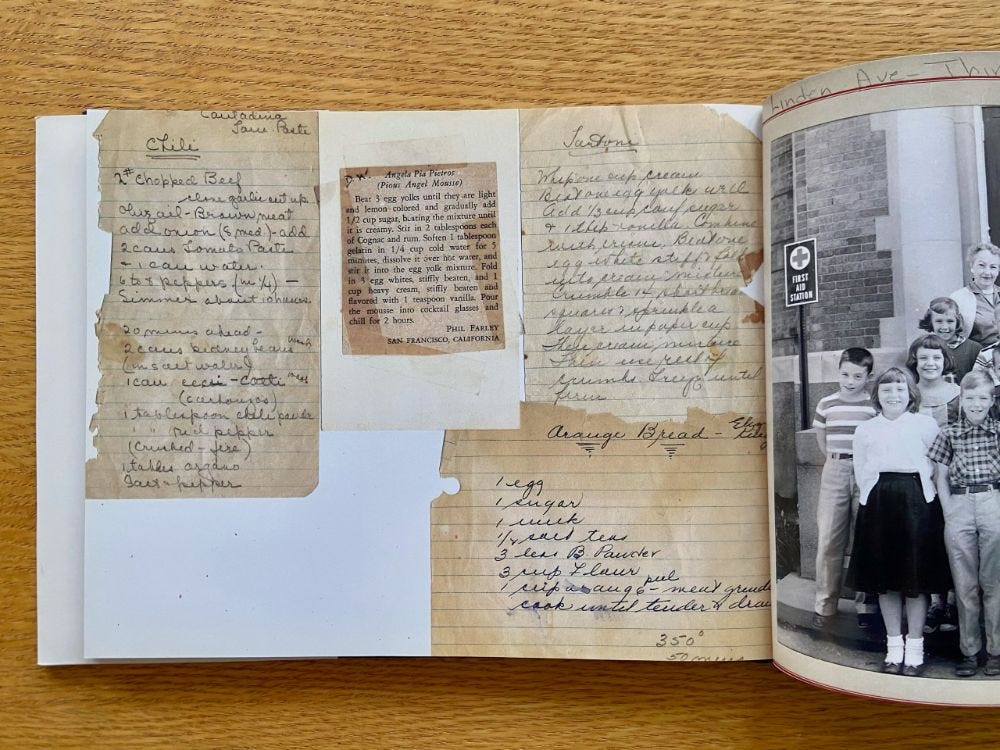 Tom. Paste
Chili
2# Chopped Beef
clove garlic cut up
Olive oil - Brown meat
add onion (8 med) - add
2 cans Tomato Paste
& 1 can water.
6 to 8 peppers (in 1/4) -
Simmer about 1 0 hours
20 mins ahead -
2 cans kidney beans
(in salt water)
1 can ceci -
1 tablespoon chili powder
" " red pepper
(crushed - fire)
1 tables organo
Salt & pepper
Angela Pia Pietros
(Pious Angel Mousse)
Beat 3 egg yolks until they are light
and lemon colored and gradually add
1/2 cup sugar, beating the mixture until
it is creamy. Stir in 2 tablespoons each
of Cognac and rum. Soften 1 tablespoon
gelatin in 1/4 cup cold water for 5
minutes, dissolve it over hot water, and
stir it into the egg yolk mixture. Fold
in 3 egg whites, stiffly beaten, and 1
cup heavy cream, stiffly beaten and
flavored with 1 teaspoon vanilla. Pour
the mousse into cocktail glasses and
chill for 2 hours.
PHIL FARLEY
SAN FRANCISCO, CALIFORNIA
Tortoni
Whip one cup cream
Beat one egg yolk well
Add 1/3 cup conf sugar
& 1 tbsp vanilla. Combine
with cream. Beat one
egg white stiff & fold
into cream mixture
Crumble 14
squares & sprinkle a
layer in paper cup
cream mixture
use rest of
crumbs. Freeze until
firm
Orange Bread -
1 egg
1 sugar
1 milk
1/2 salt teas
3 teas B. Powder
3 cup Flour
1 cup orange peel - meat grinde
cook until tender & drai
350°
50 mins
Linden Ave - Thir
FIRST
AID
STATION